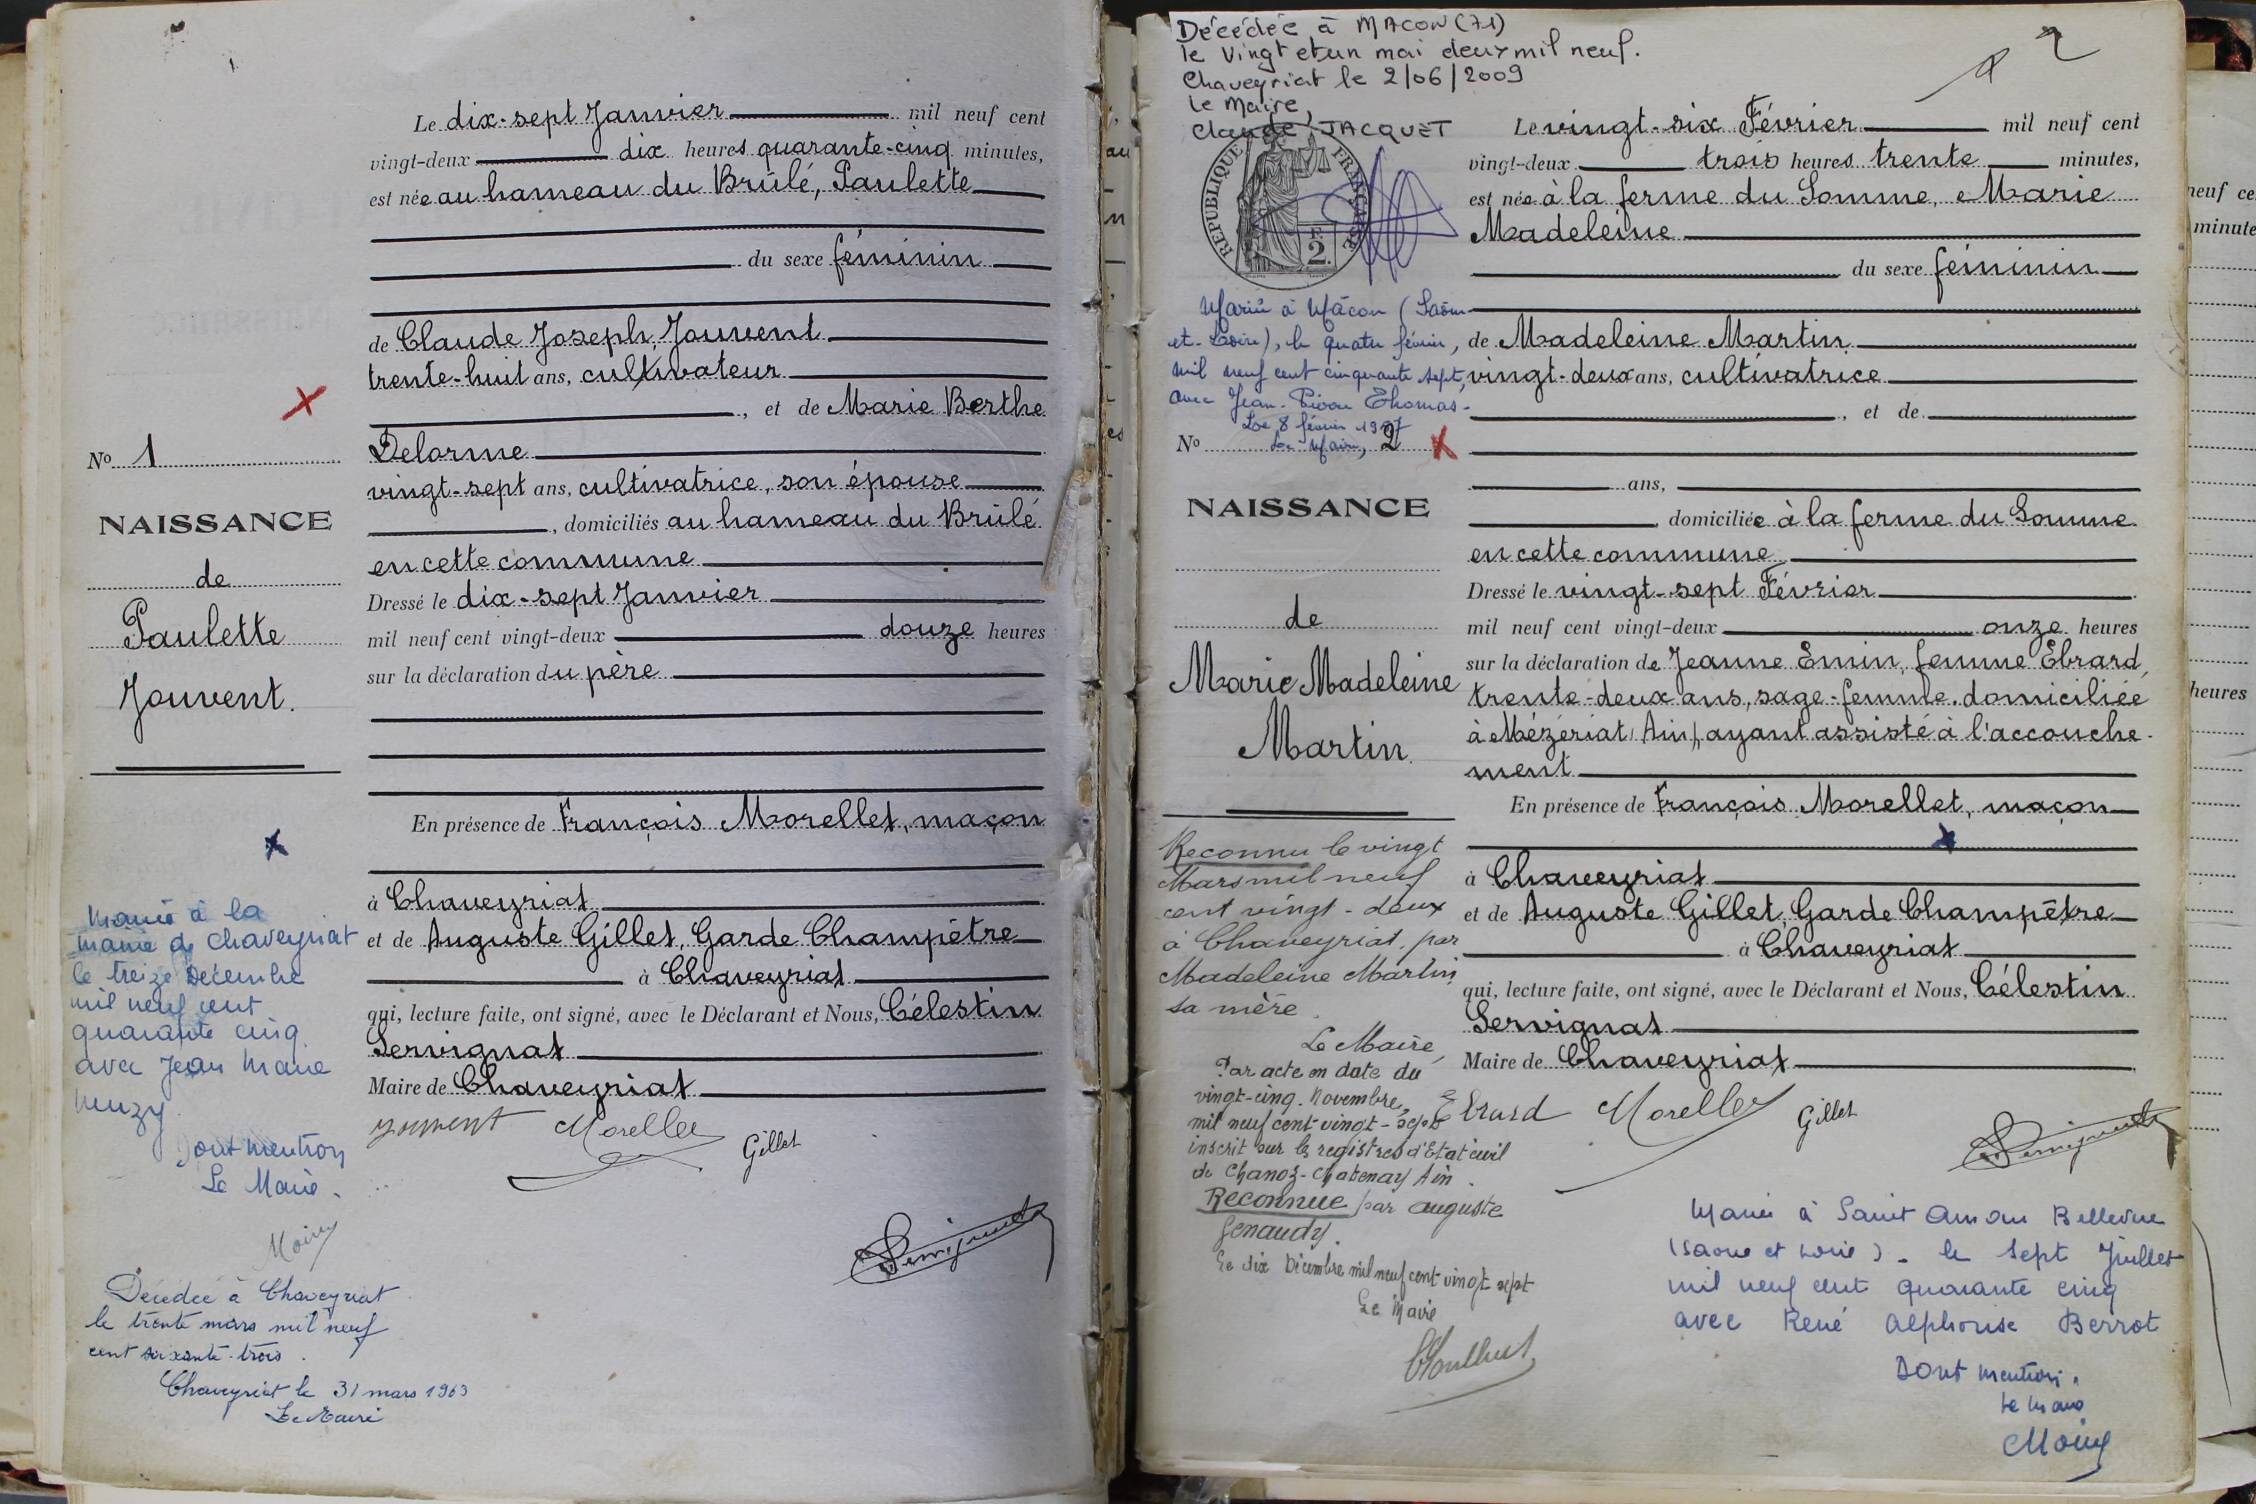 Le dix-sept Janvier mil neuf cent
vingt-deux dix heures quarante-cinq minutes,
est née au hameau du Brûlé, Paulette
du sexe féminin
de Claude Joseph Jouvent
trente-huit ans, cultivateur
, et de Marie Berthe
Delorme
vingt-sept ans, cultivatrice, son épouse
, domiciliés au hameau du Brûlé
en cette commune
Dressé le dix-sept Janvier
mil neuf cent vingt-deux douze heures
sur la déclaration du père
En présence de François Morellet, maçon
à Chaveyriat
et de Auguste Gillet, Garde Champêtre
à Chaveyriat
qui, lecture faite, ont signé, avec le Déclarant et Nous, Célestin
Servignat
Maire de Chaveyriat
Jouvent Morellet Gillet
Servignat
No 1
NAISSANCE
de
Paulette
Jouvent.
Mariée à la
mairie de Chaveyriat
le treize Décembre
mil neuf cent
quarante cinq
avec Jean Marie
Dont mention
Le Maire.
Décédée à Chaveyriat
le trente mars mil neuf
cent soixante-trois.
Chaveyriat le 31 mars 1963
Le Maire
Décédée à MACON (71)
le Vingt et un mai deux mil neuf.
Chaveyriat le 2/06/2009
le Maire,
Claude JACQUET
2
RÉPUBLIQUE FRANÇAISE
2
Mariée à Mâcon (Saône-
et-Loire), le quatre février,
mil neuf cent cinquante sept,
avec Jean-Pierre Thomas.
Le 8 février 1957
Le Maire,
No 2
NAISSANCE
de
Marie Madeleine
Martin
Reconnu le vingt
Mars mil neuf
cent vingt-deux
à Chaveyriat, par
Madeleine Martin
sa mère.
Le Maire,
Par acte en date du
vingt-cinq Novembre
mil neuf cent vingt-sept
inscrit sur les registres d'Etat civil
de Chanoz-Chatenay Ain.
Reconnue par Auguste
Genaudy.
Le dix Décembre mil neuf cent vingt sept
Le Maire
Le vingt-six Février mil neuf cent
vingt-deux trois heures trente minutes,
est née à la ferme du Somme, Marie
Madeleine
du sexe féminin
de Madeleine Martin
vingt-deux ans, cultivatrice
, et de
ans,
, domiciliée à la ferme du Somme
en cette commune
Dressé le vingt-sept Février
mil neuf cent vingt-deux onze heures
sur la déclaration de Jeanne Emin, femme Ebrard,
trente-deux ans, sage-femme, domiciliée
à Mézériat (Ain), ayant assisté à l'accouche-
ment
En présence de François Morellet, maçon
à Chaveyriat
et de Auguste Gillet, Garde Champêtre
à Chaveyriat
qui, lecture faite, ont signé, avec le Déclarant et Nous, Célestin
Servignat
Maire de Chaveyriat
Ebrard Morellet Gillet
Servignat
Mariée à Saint Amour Bellevue
(Saone et Loire). le sept Juillet
mil neuf cent quarante cinq
avec René Alphonse Berrot
Dont mention.
Le Maire
neuf ce
minute
heures